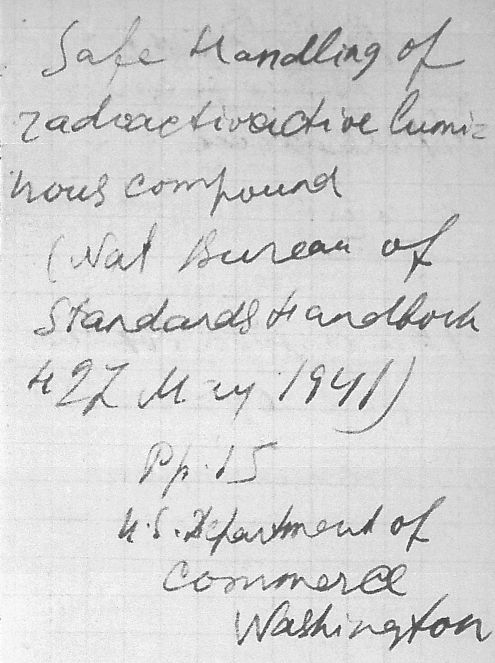 Safe Handling of
radioactivactive lumi=
nous compound
(Nat Bureau of
Standards Handbook
H 27 May 1941)
Pp. 15
U.S. Department of
Commerce
Washington